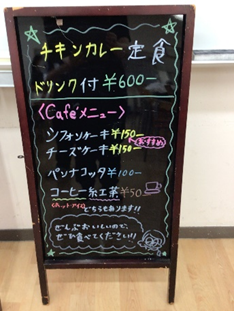 チキンカレー定食
ドリンク付 ¥600-
〈Cafeメニュー〉
シフォンケーキ ¥150-
おすすめ
チーズケーキ ¥150-
パンナコッタ ¥100-
コーヒー 紅茶 ¥50
ホット アイス どちらもあります!!
ぜんぶおいしいので、
ぜひ食べてください!!